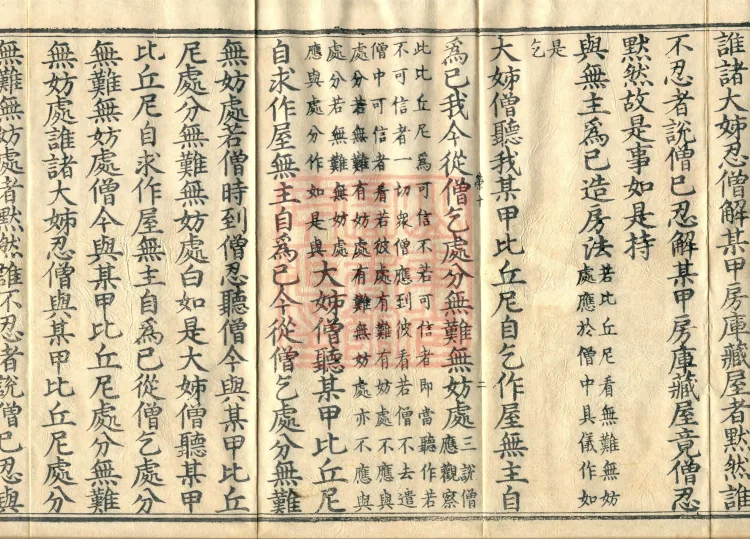 誰諸大姊忍僧解某甲房庫藏屋者默然誰
不忍者說僧已忍解某甲房庫藏屋竟僧忍
默然故是事如是持
與無主為已造房法
若比丘尼看無難無妨
處應於僧中具儀作如
是
乞
大姊僧聽我某甲比丘尼自乞作屋無主自
為已我今從僧乞處分無難無妨處
三說僧
應觀察
此比丘尼為可信不若可信者即當聽作若
不可信者一切眾僧應到彼看若僧不去遣
僧中可信者看若彼處有難有妨處不應與
處分若無難有妨處有難無妨處亦不應與
處分若無難無妨處
應與處分作如是與
大姊僧聽某甲比丘尼
自求作屋無主自為已今從僧乞處分無難
無妨處若僧時到僧忍聽僧今與某甲比丘
尼處分無難無妨處白如是大姊僧聽某甲
比丘尼自求作屋無主自為已從僧乞處分
無難無妨處僧今與某甲比丘尼處分無難
無妨處誰諸大姊忍僧與某甲比丘尼處分
無難無妨處者默然誰不忍者說僧已忍與